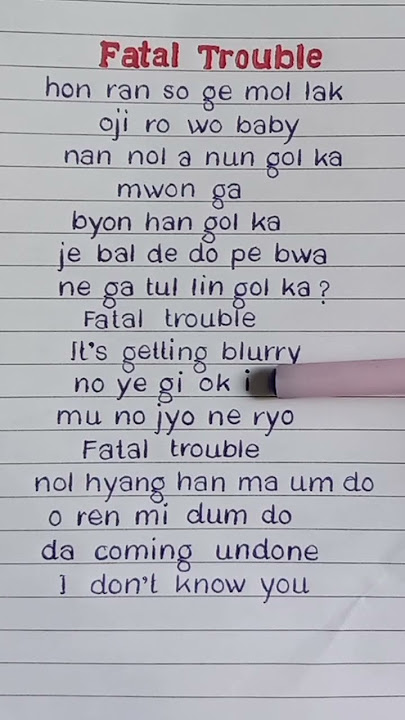 Fatal Trouble
hon ran so ge mol lak
oji ro wo baby
nan nol a nun gol ka
mwon ga
byon han gol ka
je bal de do pe bwa
ne ga tul lin gol ka?
Fatal trouble
It's getting blurry
no ye gi ok i
mu no jyo ne ryo
Fatal trouble
nol hyang han ma um do
o ren mi dum do
da coming undone
I don't know you